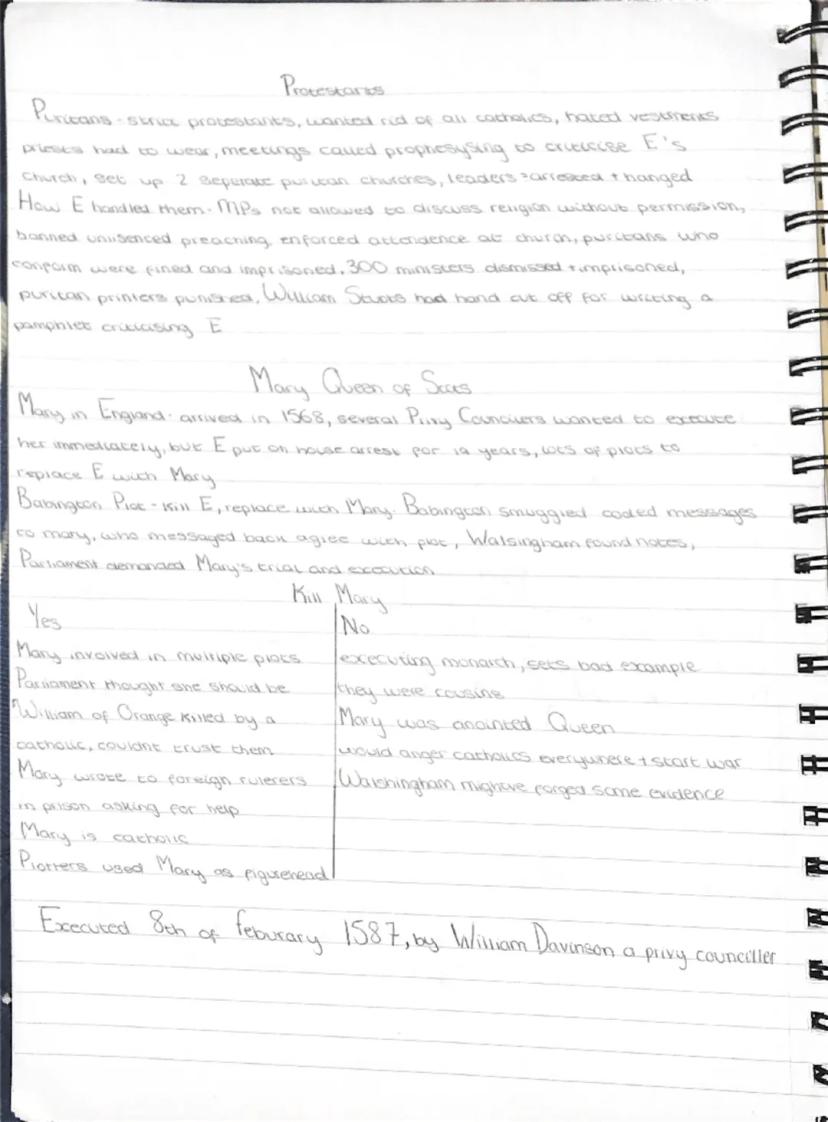 Protestants
Puritans - strict protestants, wanted rid of all catholics, hated vestments
priests had to wear, meetings called prophesysing to criticise E's
church, set up 2 seperate puritan churches, leaders = arrested + hanged
How E handled them - MPs not allowed to discuss religion without permission,
banned unlisenced preaching, enforced attendence at church, puritans who
conform were fined and imprisoned, 300 ministers dismissed + imprisoned,
puritan printers punished, William Stubbs had hand cut off for writing a
pamphlet criticising E
Mary Queen of Scots
Mary in England - arrived in 1568, several Privy Councillers wanted to execute
her immediately, but E put on house arrest for 19 years, lots of plots to
replace E with Mary
Babington Plot - Kill E, replace with Mary. Babington smuggled coded messages
to mary, who messaged back agree with plot, Walsingham found notes,
Parliament demanded Mary's trial and execution
Kill Mary
Yes
Mary involved in multiple plots
Parliament thought she should be
William of Orange killed by a
catholic, couldnt trust them
Mary wrote to foreign rulerers
in prison asking for help
Mary is catholic
Plotters used Mary as figurehead
No
executing monarch, sets bad example
they were cousins
Mary was anointed Queen
would anger catholics everywhere + start war
Walshingham mighave forged some evidence
Executed 8th of feburary 1587, by William Davinson a privy counciller